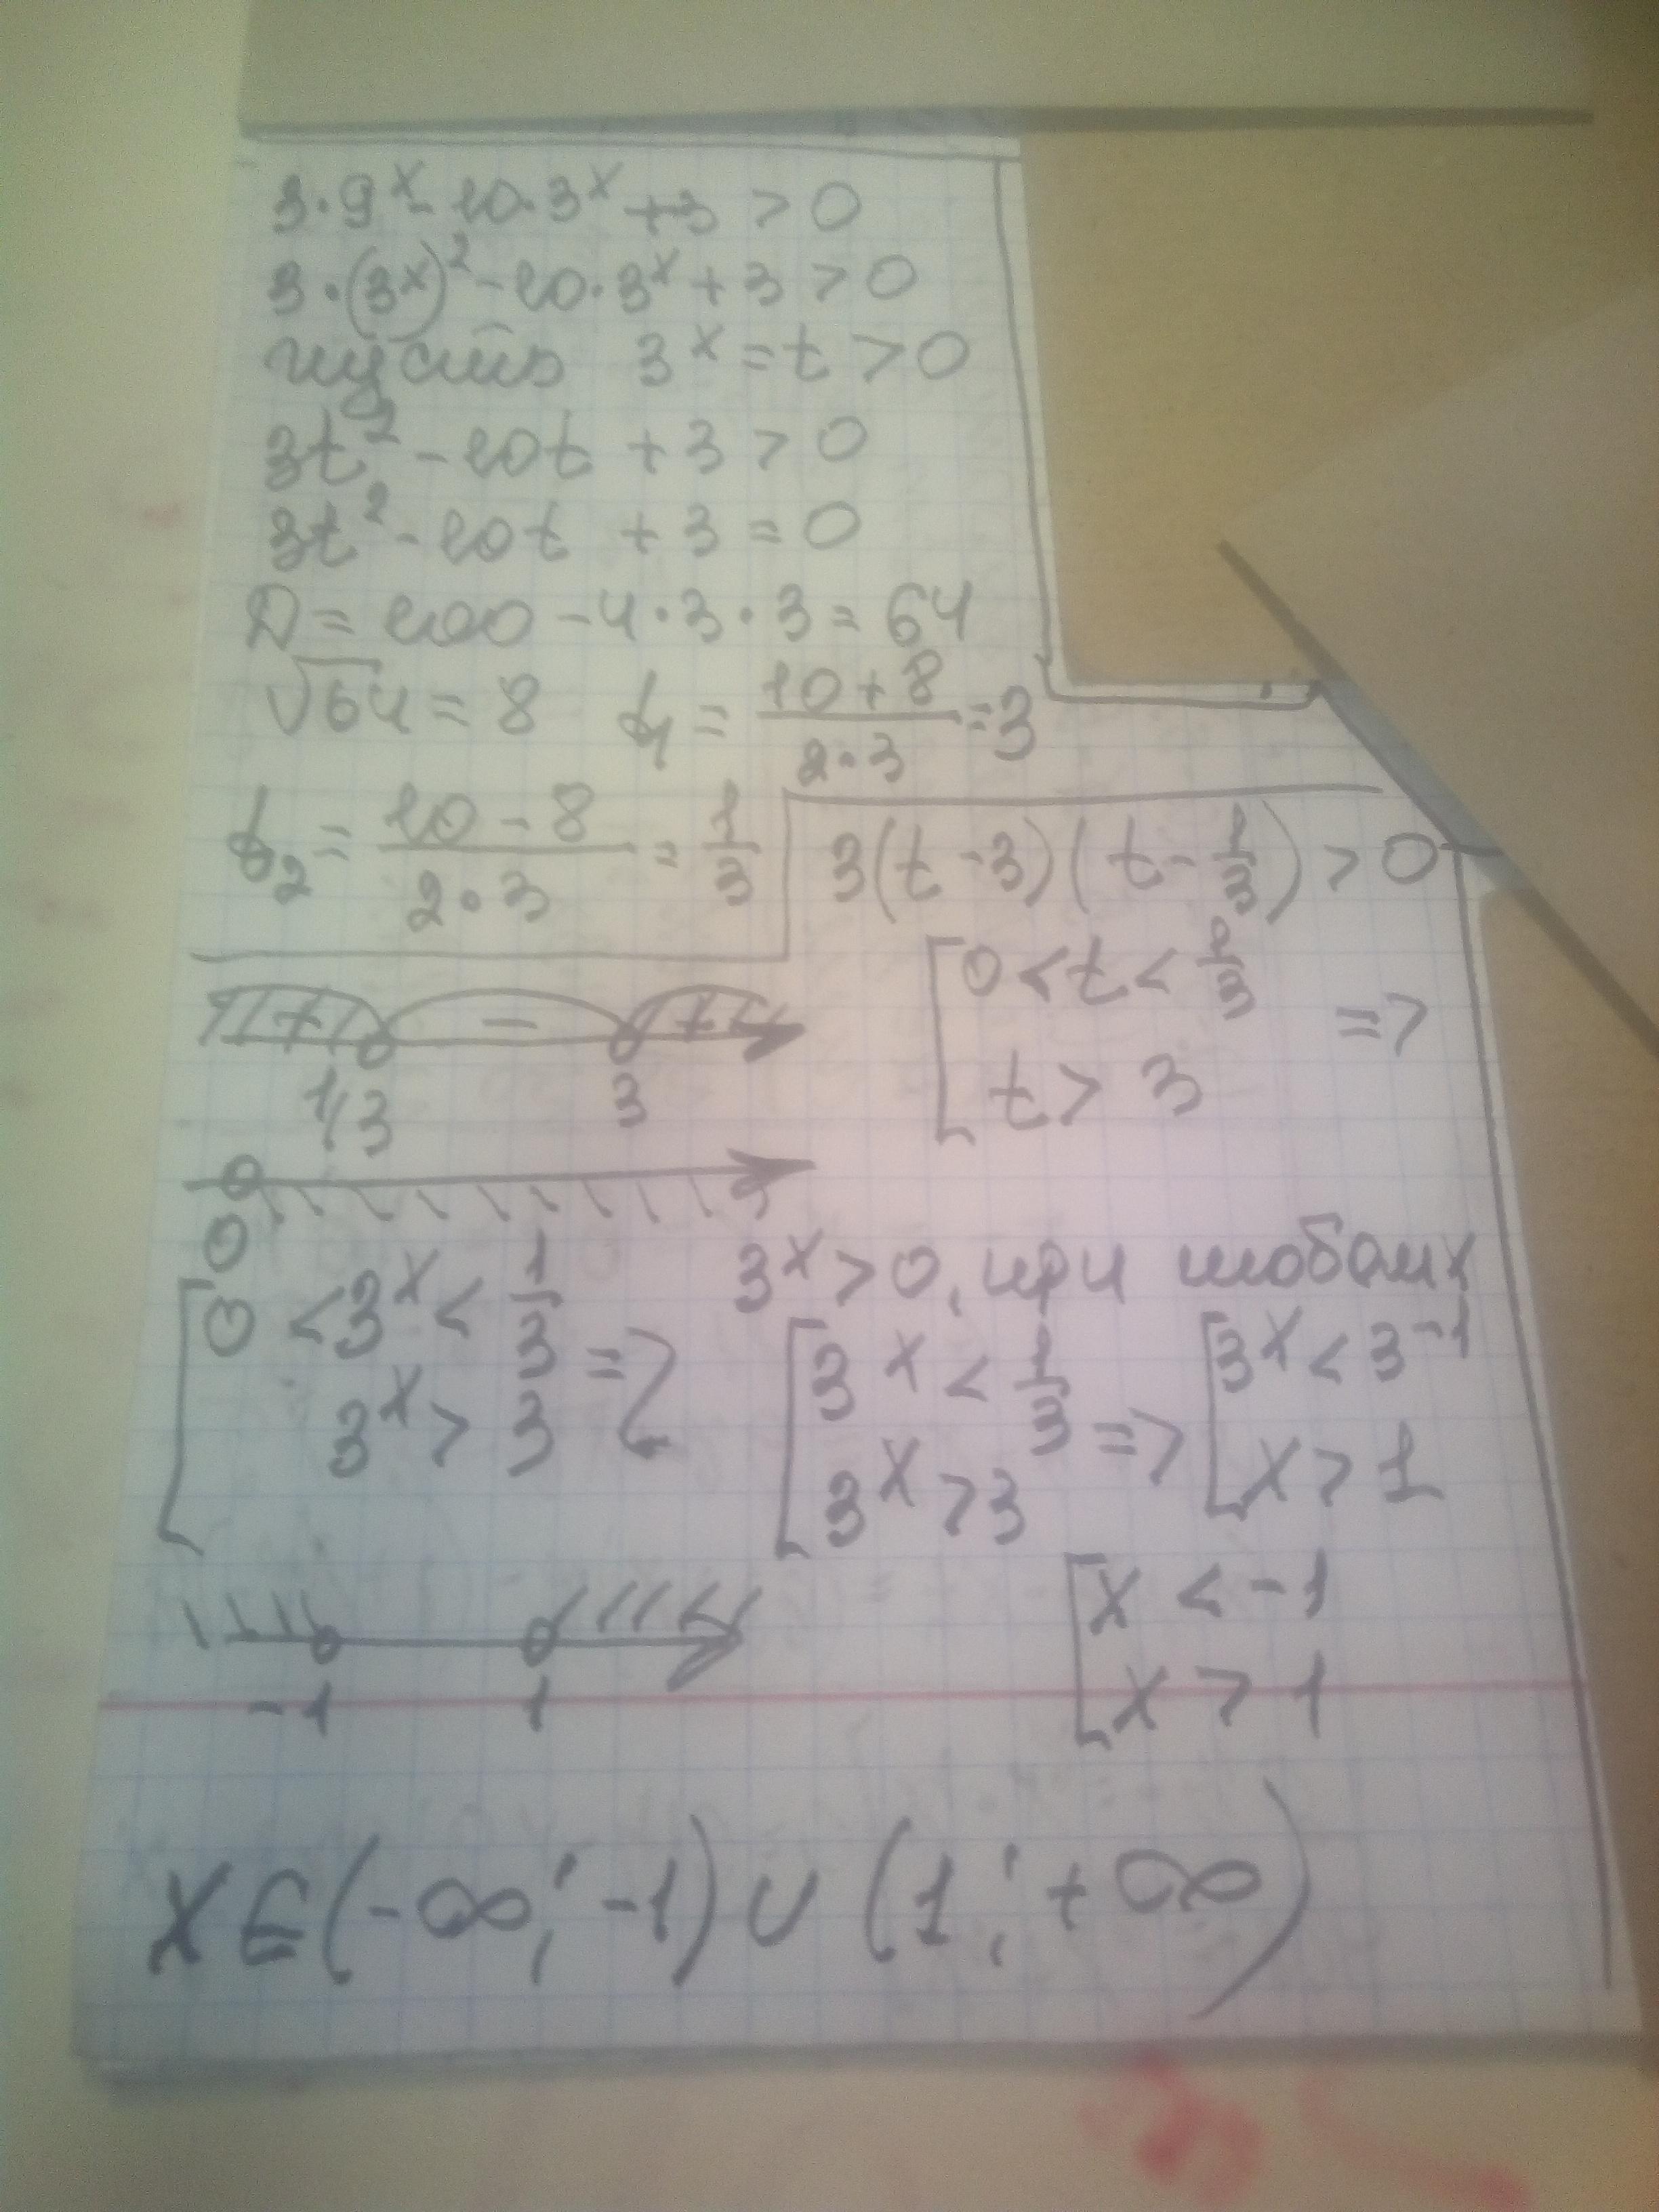 3·9ˣ - 10·3ˣ + 3 > 0
3·(3ˣ)² - 10·3ˣ + 3 > 0
пусть 3ˣ = t > 0
3t² - 10t + 3 > 0
3t² - 10t + 3 = 0
D = 100 - 4·3·3 = 64
√64 = 8 t₁ = (10+8)/(2·3) = 3
t₂ = (10 - 8)/(2·3) = 1/3
3(t - 3)(t - 1/3) > 0
+ - +
1/3 3
[0 < t < 1/3 =>
[t > 3
0
3ˣ > 0, при любом x
[0 < 3ˣ < 1/3 =>
[3ˣ > 3
[3ˣ < 1/3 =>
[3ˣ > 3
[3ˣ < 3⁻¹
[x > 1
[x < -1
[x > 1
-1 1
x ∈ (-∞; -1) ∪ (1; +∞)